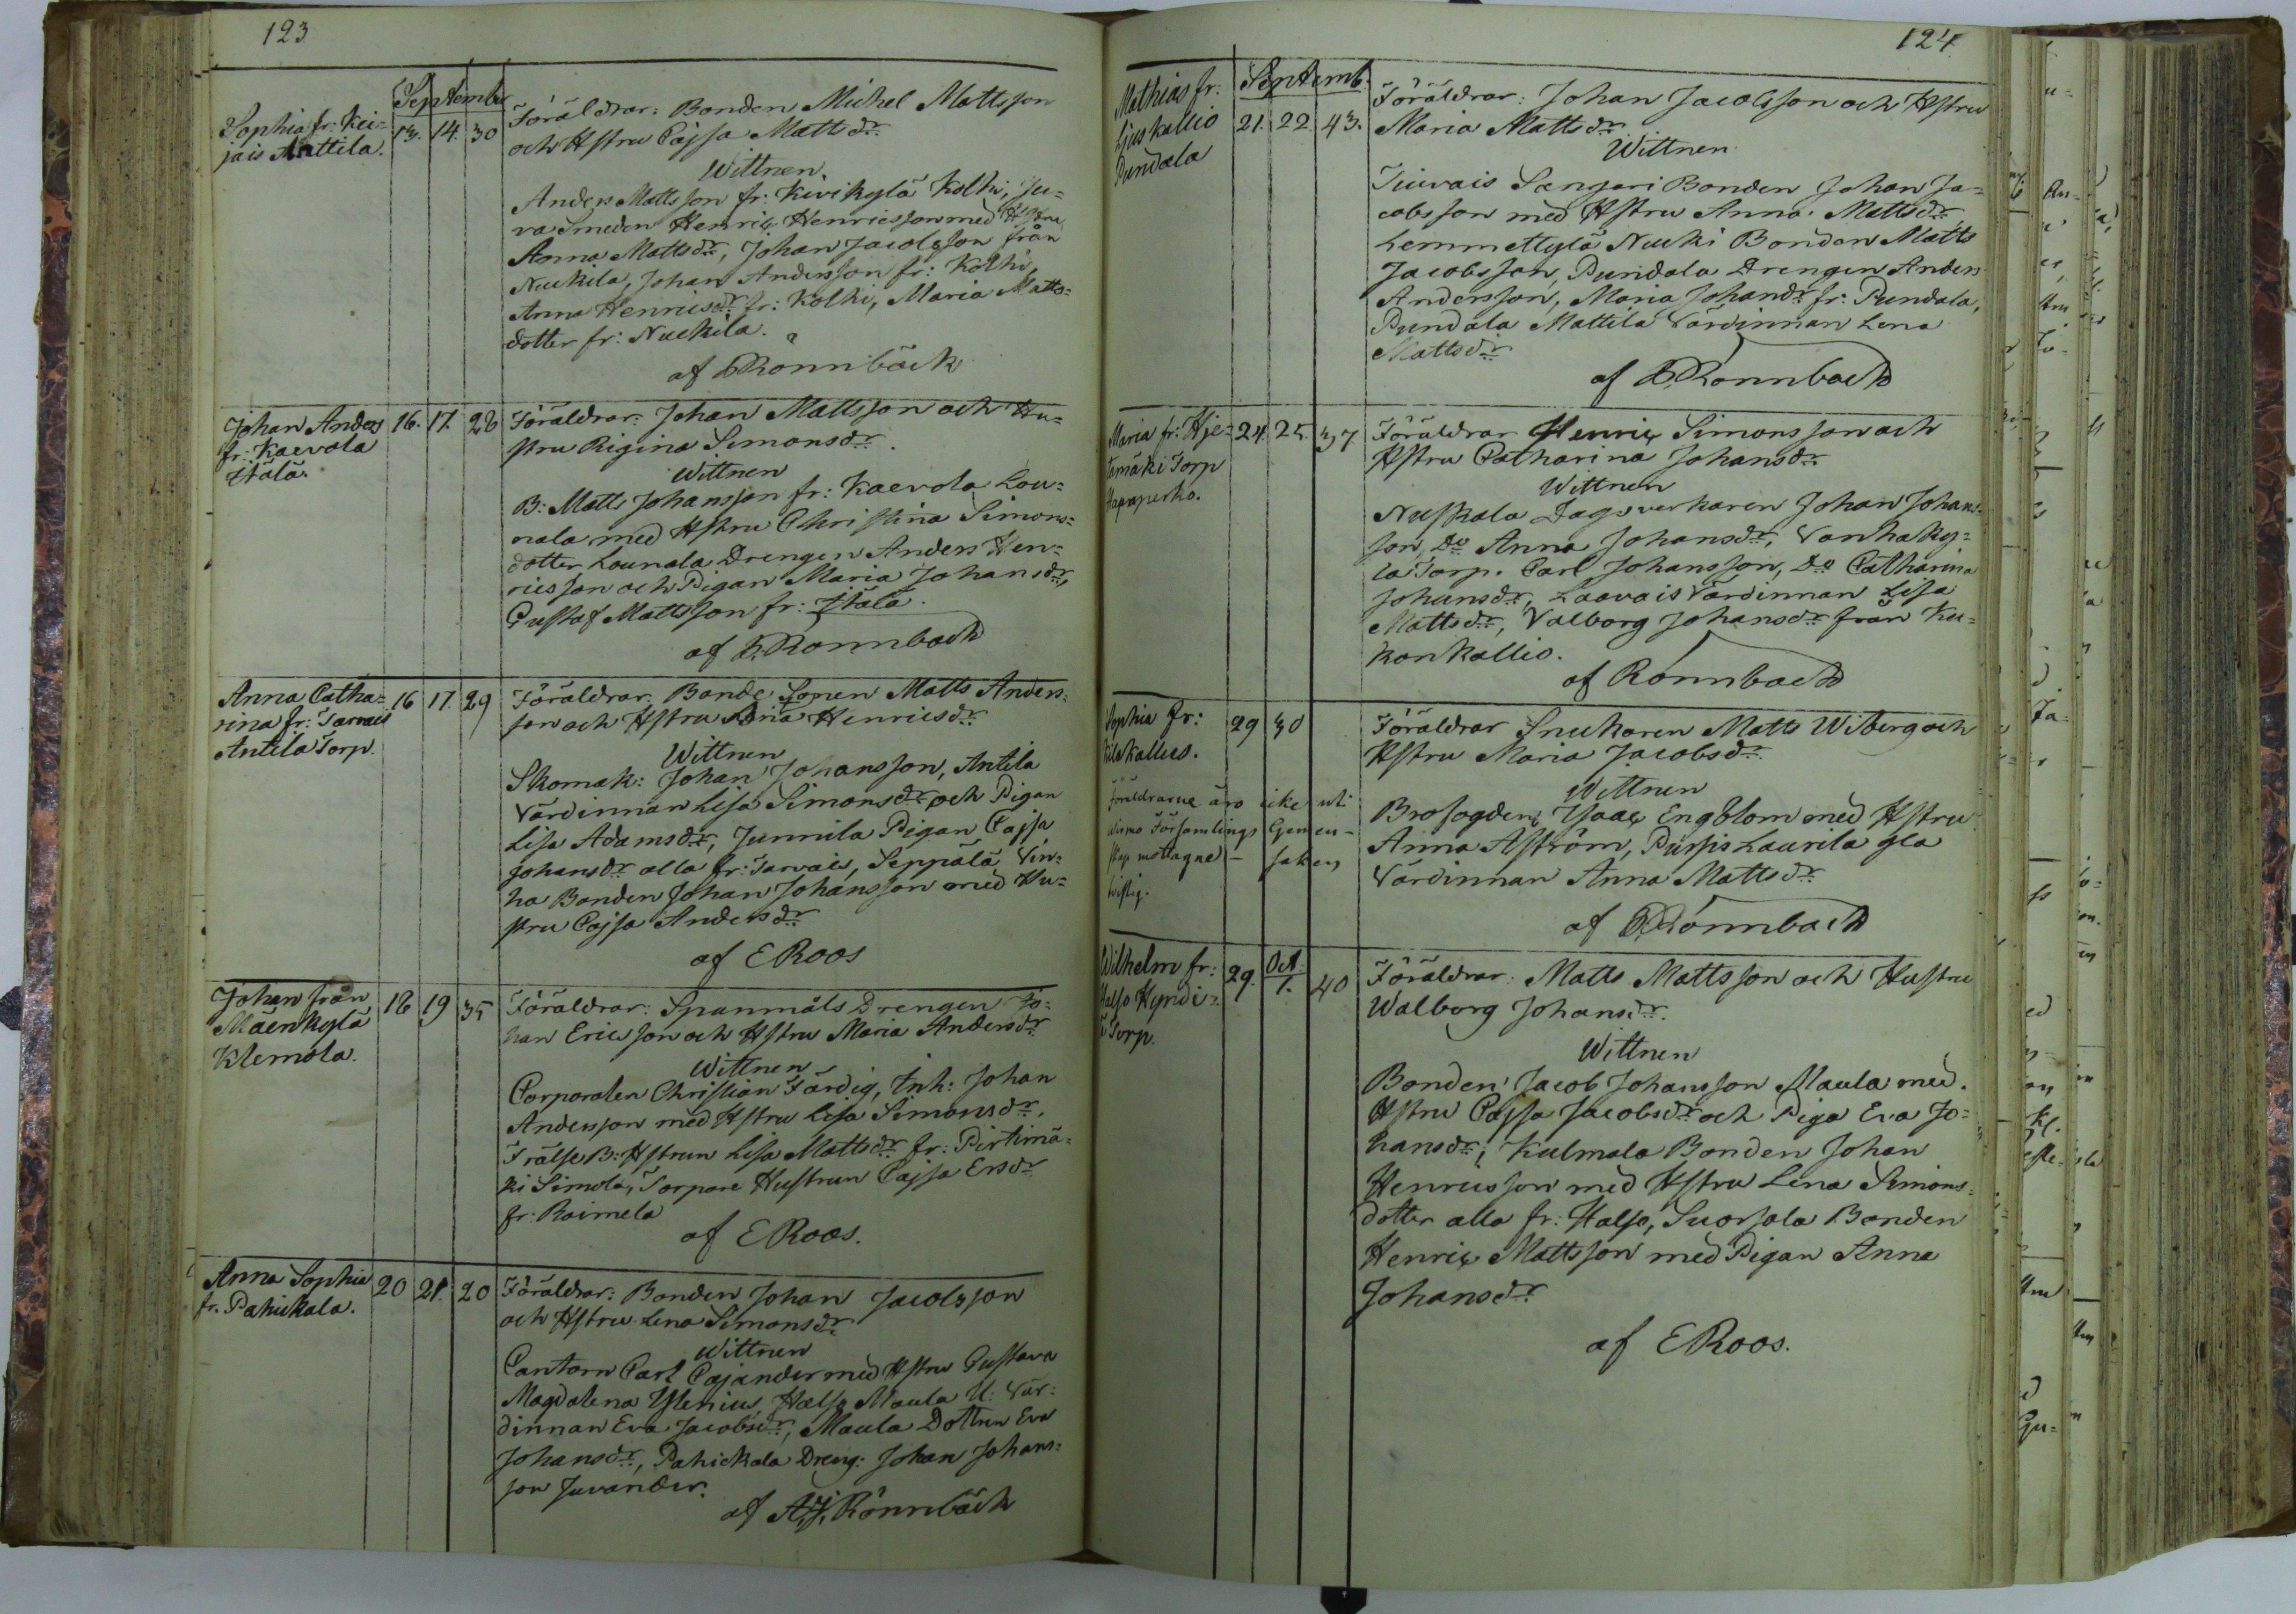 123
September
Sophia fr: Kei=
jais Anttila.
13. 14. 30
Föräldrar: Bonden Michel Mattsson
och Hstru Cajsa Matts dr
Wittnen
Anders Mattsson fr: Kivikylä Kolhi, Ju=
va Smeden Henric Henricsson med Hstru
Anna Mattsdr, Johan Jacobsson från
Nuckila, Johan Andersson fr: Kolhi,
Anna Henricsdr fr: Kolhi, Maria Matts=
dotter fr: Nuckila.
af Rönnbäck
Johan Anders
fr: Kaevola
Ytälä.
16. 17. 28
Föräldrar: Johan Mattsson och Hu=
stru Rigina Simonsdr.
Wittnen
B: Matts Johansson fr: Kaevola Lou=
nala med Hstru Christina Simons=
dotter Lounala Drengen Anders Hen=
ricsson och Pigan Maria Johansdr,
Gustaf Mattsson fr: Ytälä.
af Rönnbäck
Anna Catha=
rina fr: Tarvais
Antila Torp.
16 17. 29
Föräldrar Bonde Sonen Matts Anders=
son och Hstru Henricsdr
Wittnen
Skomak: Johan Johansson, Antila
Värdinnan Lisa Simonsdr och Pigan
Lisa Adamsdr, Junnila Pigan Cajsa
Johansdr alla fr: Tarvais, Seppälä Vin=
ha Bonden Johan Johansson med Hu=
stru Cajsa Andersdr
af E Roos
Johan från
Mäenkylä
Klemola.
18 19 35
Föräldrar: Spanmåls Drengen Jo=
han Ericsson och Hstru Maria Andersdr
Wittnen
Corporalen Christian Färdig, Inh: Johan
Andersson med Hstru Lisa Simonsdr,
Frälse B: Hstrun Lisa Mattsdr fr: Pirtimä=
ki Simola, Torpare Hustrun Cajsa Ersdr
fr: Raimela
af E Roos.
Anna Sophia
fr. Pahickala.
20 21. 20
Föräldrar: Bonden Johan Jacobsson
och Hstru Lena Simonsdr
Wittnen
Cantorn Carl Cajander med Hstru Gustava
Magdalena Ylenius, Halso Maula U: Vär=
dinnan Eva Jacobsdr, Maula Dottren Eva
Johansdr, Pahickala Dreng: Johan Johans=
son Juvander.
af A.J. Rönnbäck
124
Mathias fr:
Ljuskallio
Pundala
Septemb.
21. 22 43.
Föräldrar: Johan Jacobsson och Hstru
Maria Mattsdr
Wittnen
Tiuvais Sangari Bonden Johan Ja=
cobsson med Hstru Anna Mattsdr
Lemmettylä Nucki Bonden Matts
Jacobsson, Pundala Drengen Anders
Andersson, Maria Johansdr fr: Pundala,
Pundala Mattila Värdinnan Lena
Mattsdr
af Rönnbäck
Maria fr: Hje=
tamäki Torp
Haapaperko.
24. 25. 37
Föräldrar Henric Simonsson och
Hstru Catharina Johansdr
Wittnen
Nuskala Dagsverkaren Johan Johans=
son, Do Anna Johansdr, Vanhaky=
lä Torp. Carl Johansson, Do Catharina
Johansdr, Laavais Värdinnan Lisa
Mattsdr, Valborg Johansdr från Ku=
konkallio.
af Rönnbäck
Sophia fr:
29 30
Föräldrarne äro icke uti
Wirmo Församlings Gemen-
skap mottagne - saken
tvistig.
Föräldrar Snickaren Matts Wiberg och
Hstru Maria Jacobsdr
Wittnen
Brofogden Isaac Engblom med Hstru
Anna Aström, Pursis Laurila gla
Värdinnan Anna Mattsdr
af Rönnbäck
Wilhelm fr:
Halso Hyndi=
ä Torp.
29. Oct. 1. 40
Föräldrar: Matts Mattsson och Hustru
Walborg Johansdr.
Wittnen
Bonden Jacob Johansson Maula med
Hstru Cajsa Jacobsdr och Piga Eva Jo=
hansdr, Kulmala Bonden Johan
Henricsson med Hstru Lena Simons=
dotter alla fr: Halso, Suorsala Bonden
Henric Mattsson med Pigan Anna
Johansdr
af E Roos.